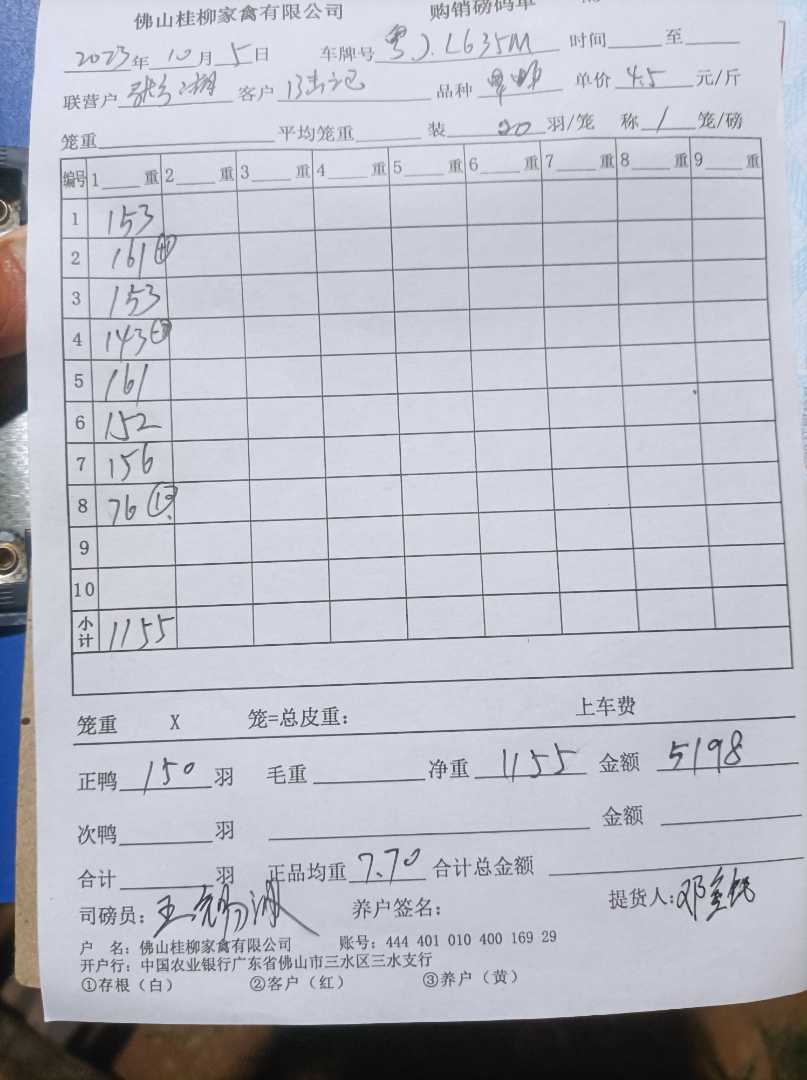 佛山桂柳家禽有限公司 购销磅码单
2023年10月5日 车牌号粤J.L635M 时间 至
联营户 客户 记 品种 单价4.5元/斤
笼重 平均笼重 装20羽/笼 称1笼/磅
编号 1 重 2 重 3 重 4 重 5 重 6 重 7 重 8 重 9 重
1 153
2 161
3 153
4 143
5 161
6 152
7 156
8 76
9
10
小计 1155
笼重 X 笼=总皮重: 上车费
正鸭150羽 毛重 净重1155 金额5198
次鸭 羽 金额
合计 羽 正品均重7.70 合计总金额
司磅员: 王 养户签名: 提货人:邓
户 名: 佛山桂柳家禽有限公司 账号: 444 401 010 400 169 29
开户行: 中国农业银行广东省佛山市三水区三水支行
①存根（白） ②客户（红） ③养户（黄）